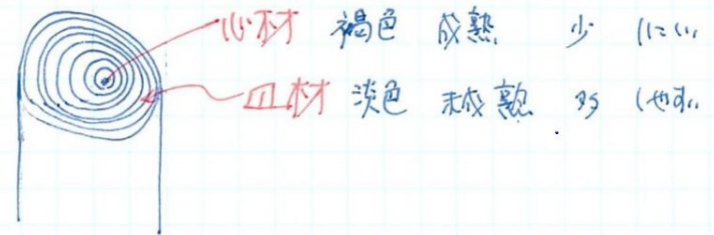 心材 褐色 成熟 少 (にくい
皿材 淡色 未成熟 多 (やすい